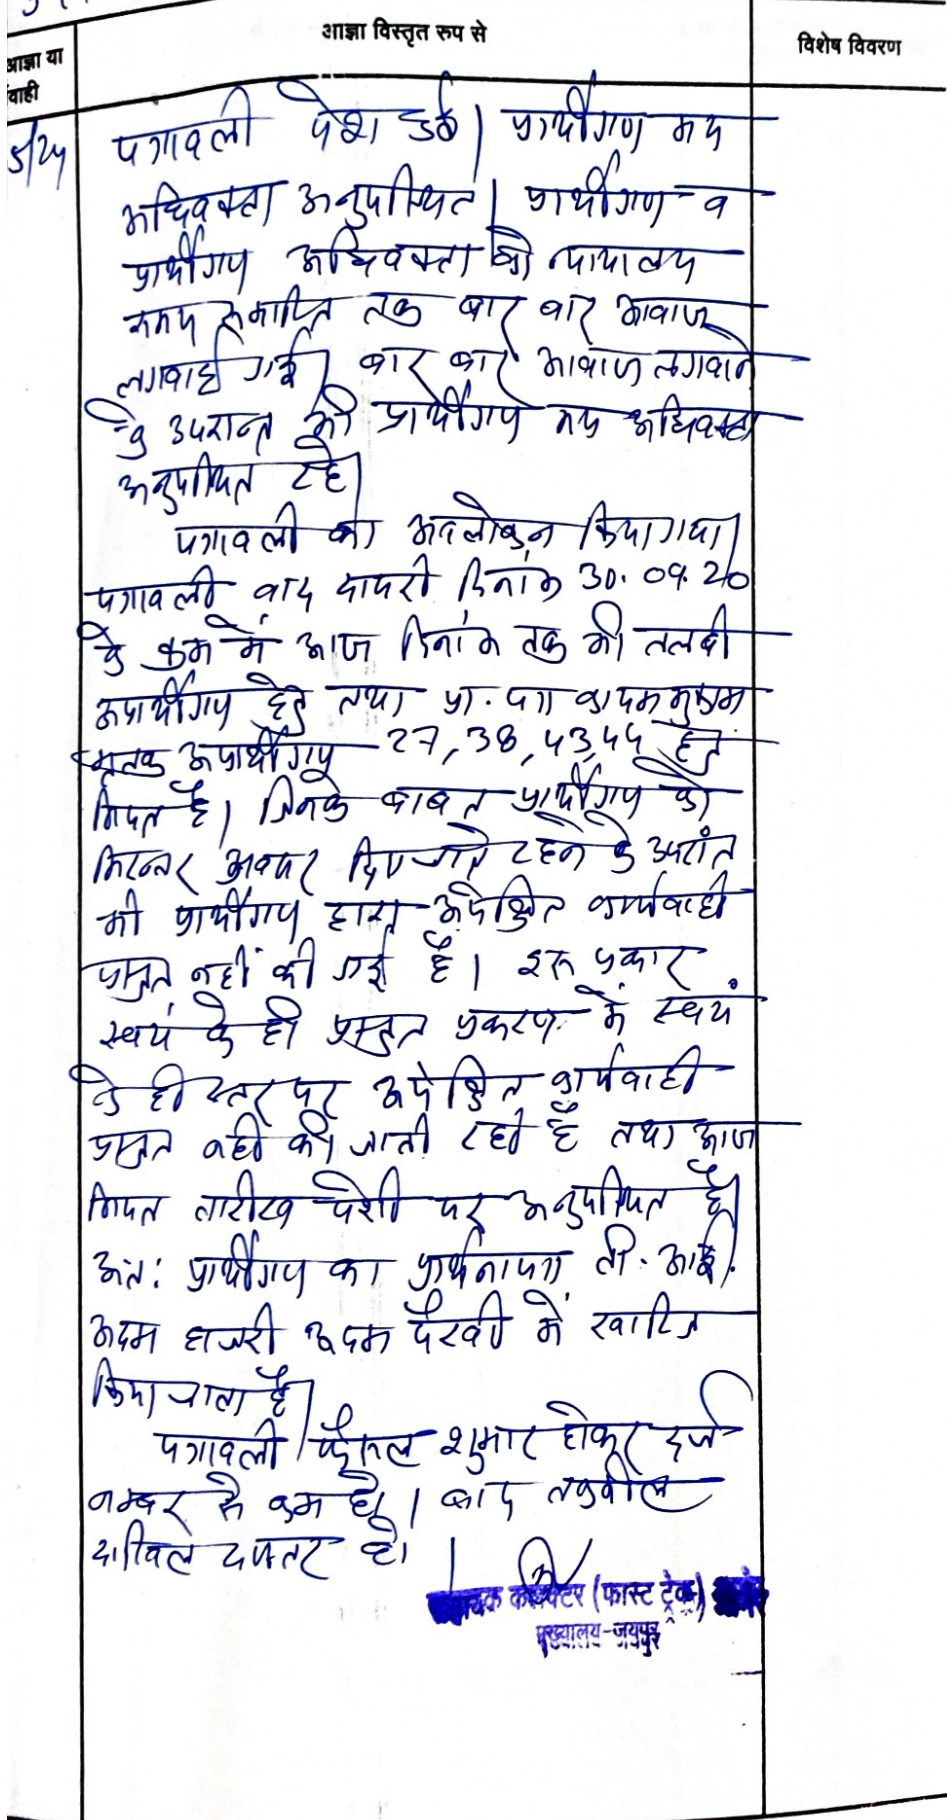 आज्ञा विस्तृत रुप से
विशेष विवरण
आज्ञा या
वाही
5/24
पत्रावली पेश हुई। प्रार्थीगण मय
अधिवक्ता अनुपस्थित। प्रार्थीगण व
प्रार्थीगण अधिवक्ता को न्यायालय
समय समाप्ति तक बार बार आवाज
लगवाई गई। बार बार आवाज लगवाने
के उपरान्त भी प्रार्थीगण मय अधिवक्ता
अनुपस्थित रहे।
पत्रावली का अवलोकन किया गया।
पत्रावली वाद दायरी दिनांक 30.09.20
के क्रम में आज दिनांक तक भी तलबी
अप्रार्थीगण हेतु तथा प्रा. पत्र कायम मुकाम
मृतक अप्रार्थीगण 27, 38, 43, 44 हेतु
नियत है। जिनके बाबत प्रार्थीगण को
निरन्तर अवसर दिए जाते रहने के उपरांत
भी प्रार्थीगण द्वारा अपेक्षित कार्यवाही
प्रस्तुत नहीं की गई है। इस प्रकार
स्वयं के ही प्रस्तुत प्रकरण में स्वयं
के ही स्तर पर अपेक्षित कार्यवाही
प्रस्तुत नहीं की जाती रही है तथा आज
नियत तारीख पेशी पर अनुपस्थित है।
अत: प्रार्थीगण का प्रार्थनापत्र टी. आई.
अदम हाजरी अदम पैरवी में खारिज
किया जाता है।
पत्रावली फैसल शुमार होकर दर्ज
नम्बर से कम हो। बाद तकमील
दाखिल दफ्तर हो।
कलेक्टर (फास्ट ट्रेक)
मुख्यालय-जयपुर